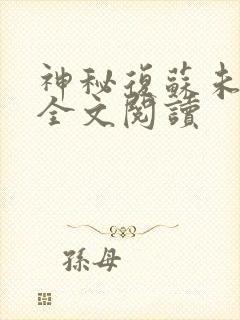 神秘復蘇未
全文閱讀
孫母